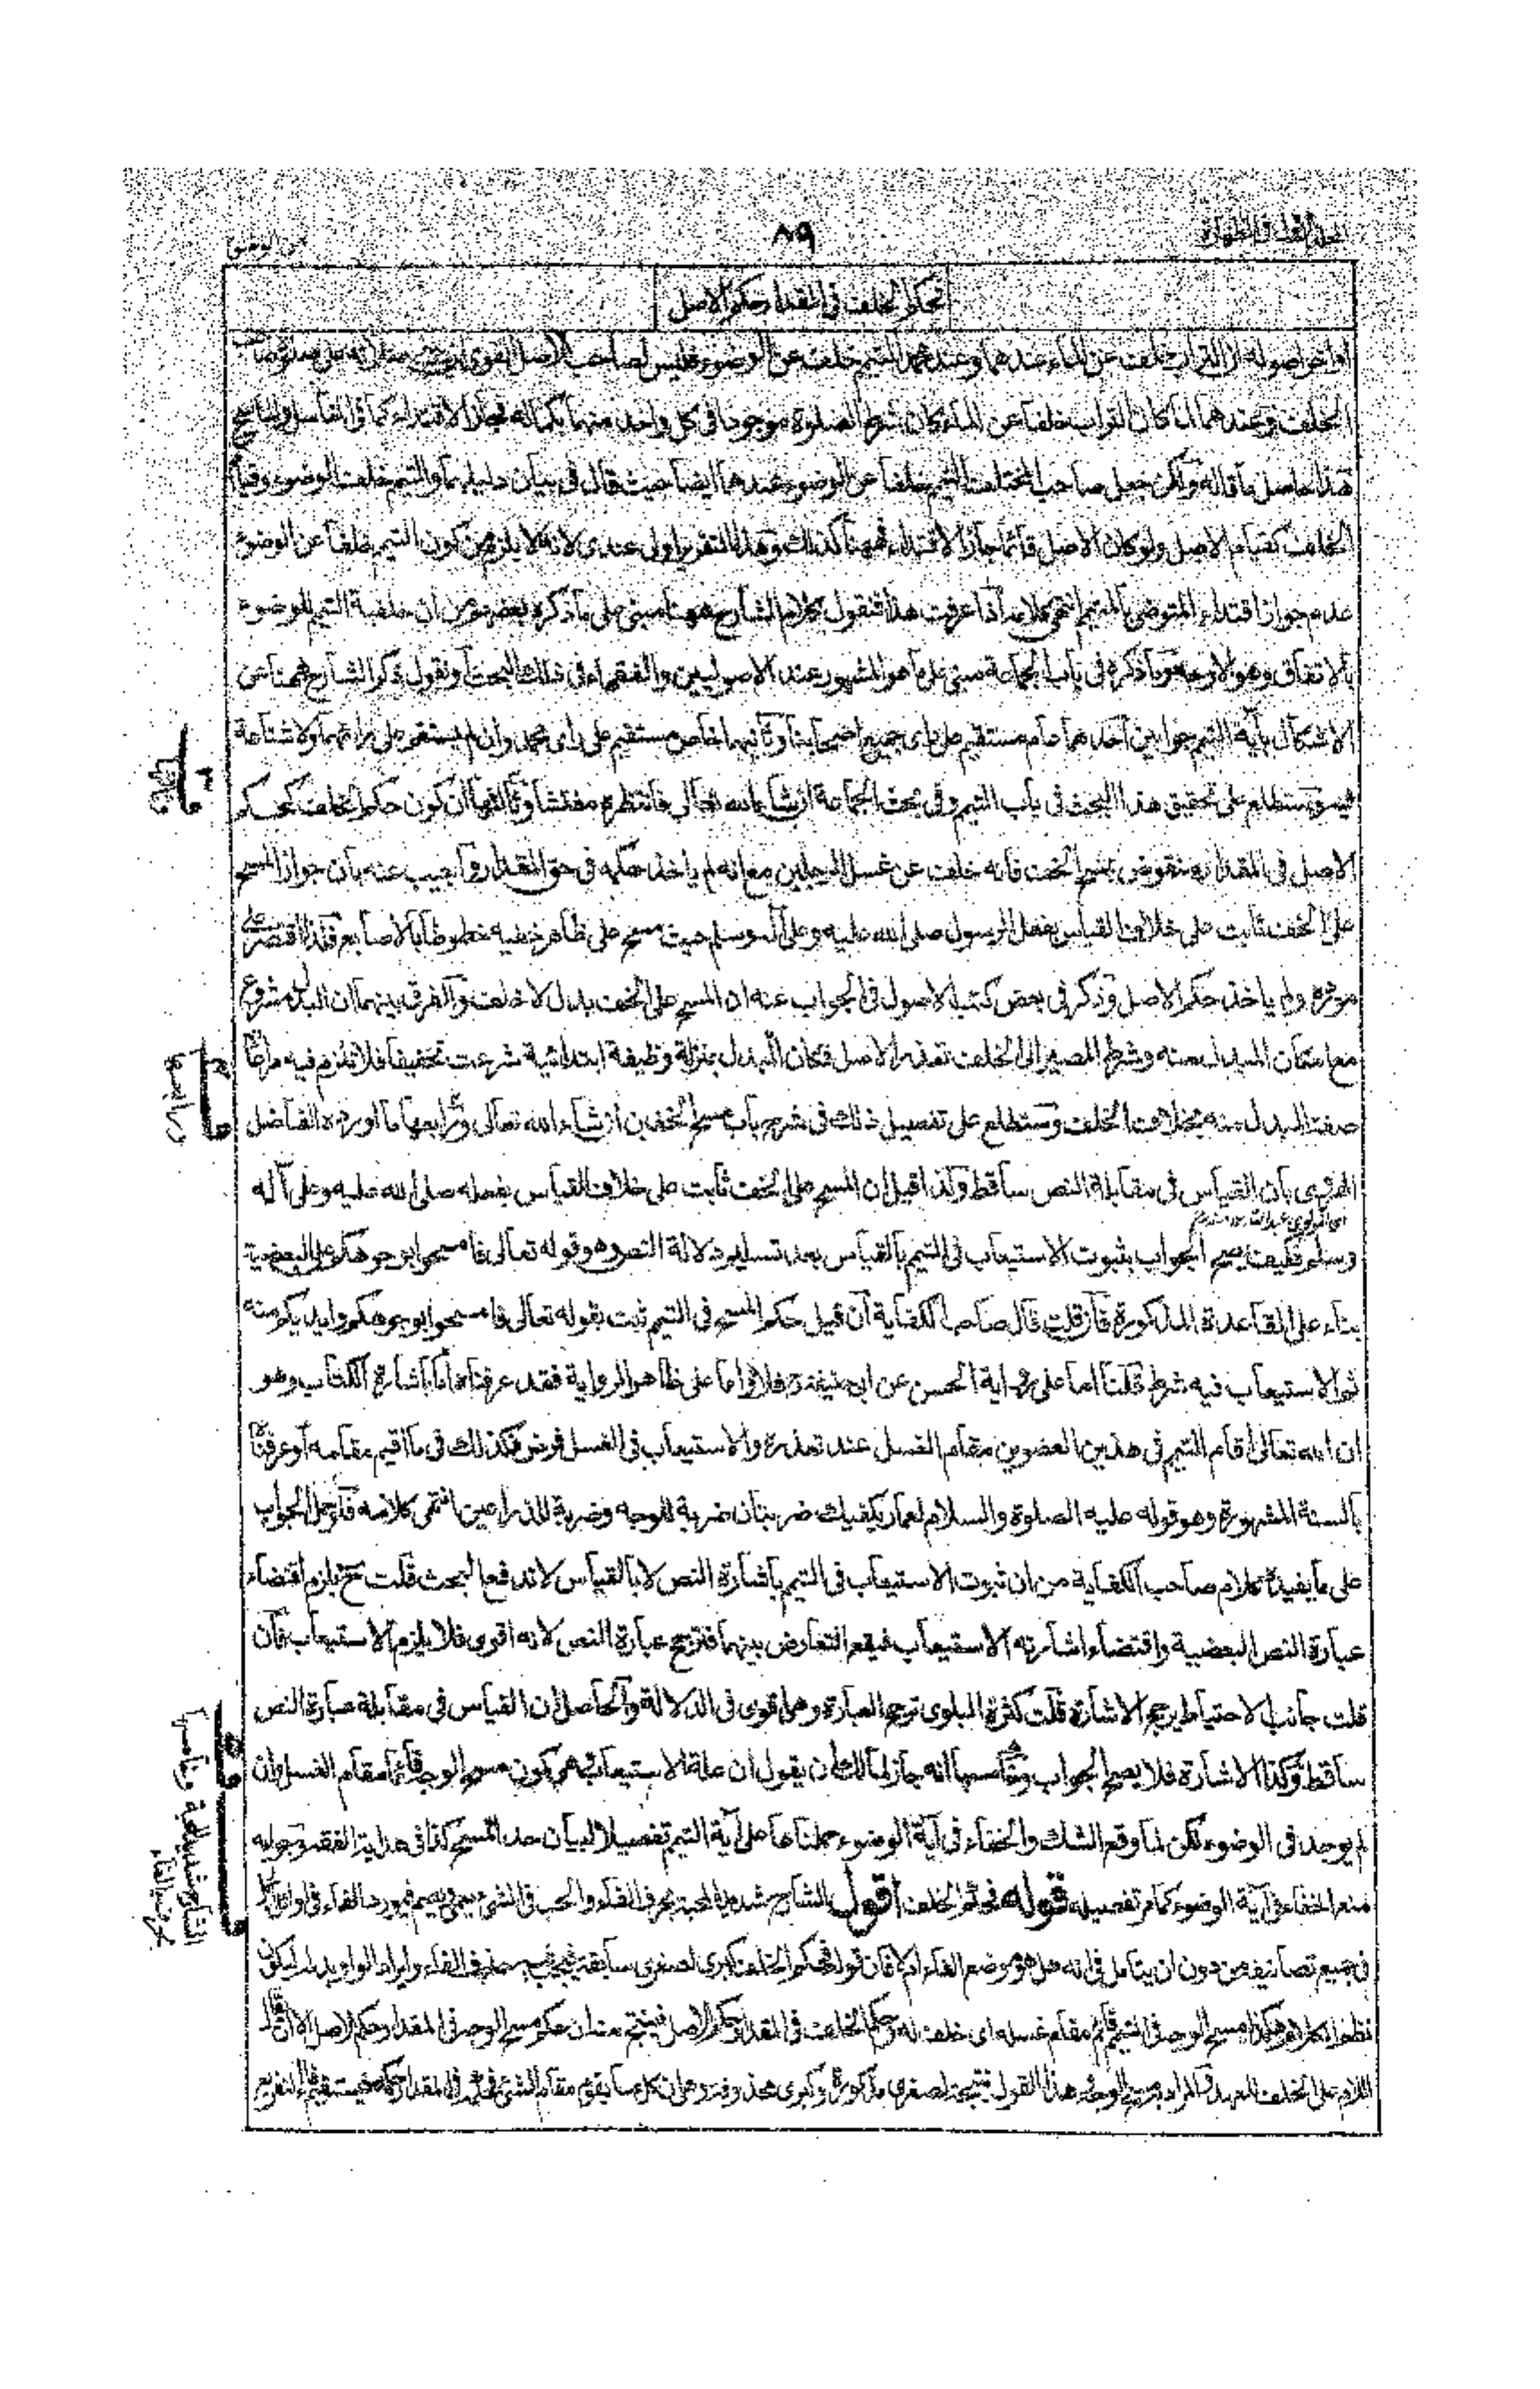 ٨٩
فحكم الخلف في المقدار حكم الاصل
اواخر اصوله ان التراب خلف عن الماء عندهما وعند محمد التيمم خلف عن الوضوء فليس لصاحب الاصل القوي ان يبني صلاته على صلوة صاحب
الخلف وعندهما لما كان التراب خلفا عن الماء كان شرط الصلوة موجودا في كل واحد منهما بكماله فجاز الاقتداء كما في الغاسل والماسح
هذا حاصل ما قاله ولكن جعل صاحب المختلف التيمم خلفا عن الوضوء عندهما ايضا حيث قال في بيان دليلهما والتيمم خلف الوضوء وقيام
الخلف كقيام الاصل ولو كان الاصل قائما جاز الاقتداء فههنا كذلك وهذا التقرير اولى عندي لانه لا يلزم من كون التيمم خلفا عن الوضوء
عدم جواز اقتداء المتوضي بالمتيمم انتهى كلامه اذا عرفت هذا فنقول كلام الشارح ههنا مبني على ما ذكره بعضهم من ان خلفية التيمم للوضوء
بالاتفاق وهو الاوجه وما ذكره في باب الجماعة مبني على ما هو المشهور عند الاصوليين والفقهاء في ذلك البحث او نقول ذكر الشارح ههنا عن
الاشكال بآية التيمم جوابين احدهما عام مستقيم على راى جميع اصحابنا وثانيهما خاص مستقيم على راى محمد وان لم يستقم على رائهما ولا شناعة
فيه وستطلع على تحقيق هذا البحث في باب التيمم وفي بحث الجماعة ان شاء الله تعالى فانتظره مفتشا وثالثها ان كون حكم الخلف كحكم
الاصل في المقدار منقوض بمسح الخف فانه خلف عن غسل الرجلين مع انه لم ياخذ حكمه في حق المقدار واجيب عنه بان جواز المسح
على الخف ثابت على خلاف القياس بفعل الرسول صلى الله عليه وعلى آله وسلم حيث مسح على ظاهر خفيه خطوطا بالاصابع فلذا اقتصر على
مورده ولم ياخذ حكم الاصل وذكر في بعض كتب الاصول في الجواب عنه ان المسح على الخف بدل لا خلف والفرق بينهما ان البدل مشروع
مع امكان المبدل منه وشرط المصير الى الخلف تعذر الاصل فكان البدل بمنزلة وظيفة ابتدائية شرعت تخفيفا فلا تلزم فيه مراعاة
صفة المبدل منه بخلاف الخلف وستطلع على تفصيل ذلك في شرح باب مسح الخفين ان شاء الله تعالى ورابعها ما اورده الفاضل
بان القياس في مقابلة النص ساقط وكذا قيل ان المسح على الخف ثابت على خلاف القياس بفعله صلى الله عليه وعلى آله
وسلم فكيف يصح الجواب بثبوت الاستيعاب في التيمم بالقياس بعد تسليم دلالة النص وهو قوله تعالى فامسحوا بوجوهكم على البعضية
بناء على القاعدة المذكورة فان قلت قال صاحب الكفاية ان قيل حكم المسح في التيمم ثبت بقوله تعالى فامسحوا بوجوهكم وايديكم منه
ثم الاستيعاب فيه شرط قلنا اما على رواية الحسن عن ابي حنيفة فلا واما على ظاهر الرواية فقد عرفناه اما باشارة الكتاب وهو
ان الله تعالى اقام التيمم في هذين العضوين مقام الغسل عند تعذره والاستيعاب في الغسل فرض فكذلك في ما اقيم مقامه او عرفناه
بالسنة المشهورة وهو قوله عليه الصلوة والسلام لعمار يكفيك ضربتان ضربة للوجه وضربة للذراعين انتهى كلامه فلو حمل الجواب
على ما يفيده كلام صاحب الكفاية من ان ثبوت الاستيعاب في التيمم باشارة النص لا بالقياس لاندفع البحث قلت ح يلزم اقتضاء
عبارة النص البعضية واقتضاء اشارته الاستيعاب فيقع التعارض بينهما فترجح عبارة النص لانه اقوى فلا يلزم الاستيعاب فان
قلت جانب الاحتياط يرجح الاشارة قلت كثرة البلوى ترجح العبارة وهي اقوى في الدلالة والحاصل ان القياس في مقابلة عبارة النص
ساقط وكذا الاشارة فلا يصح الجواب وخامسها انه جاز لمالك ان يقول ان علة الاستيعاب هي كون مسح الوجه قائما مقام الغسل وان
لم يوجد في الوضوء لكن لما وقع الشك والخفاء في آية الوضوء حملناها على آية التيمم تفصيلا لبيان حد المسح كذا في هداية الفقه وجوابه
منع الخفاء في آية الوضوء كما مر تفصيله قوله فحكم الخلف اقول الشارح شديد المحبة بحرف الفاء والحب في الشئ يعمي ويصم فيورد الفاء في اوائل
في جميع تصانيفه من دون ان يتامل في انه هل هو موضع الفاء ام لا فان قوله فحكم الخلف كبرى لصغرى سابقة فيجب حذف الفاء وايراد الواو بدله ليكون
نظم الكلام هكذا مسح الوجه في التيمم قائم مقام غسله اى خلف له وحكم الخلف في المقدار حكم الاصل فينتج ان حكم مسح الوجه في المقدار حكم الاصل الا ان يقال
اللام على الخلف للعهد والمراد به مسح الوجه هذا القول نتيجة لصغرى مذكورة وكبرى محذوفة وهي ان كل ما يقوم مقام الشئ في المقدار حكمه فيستقيم الفاء للتفريع